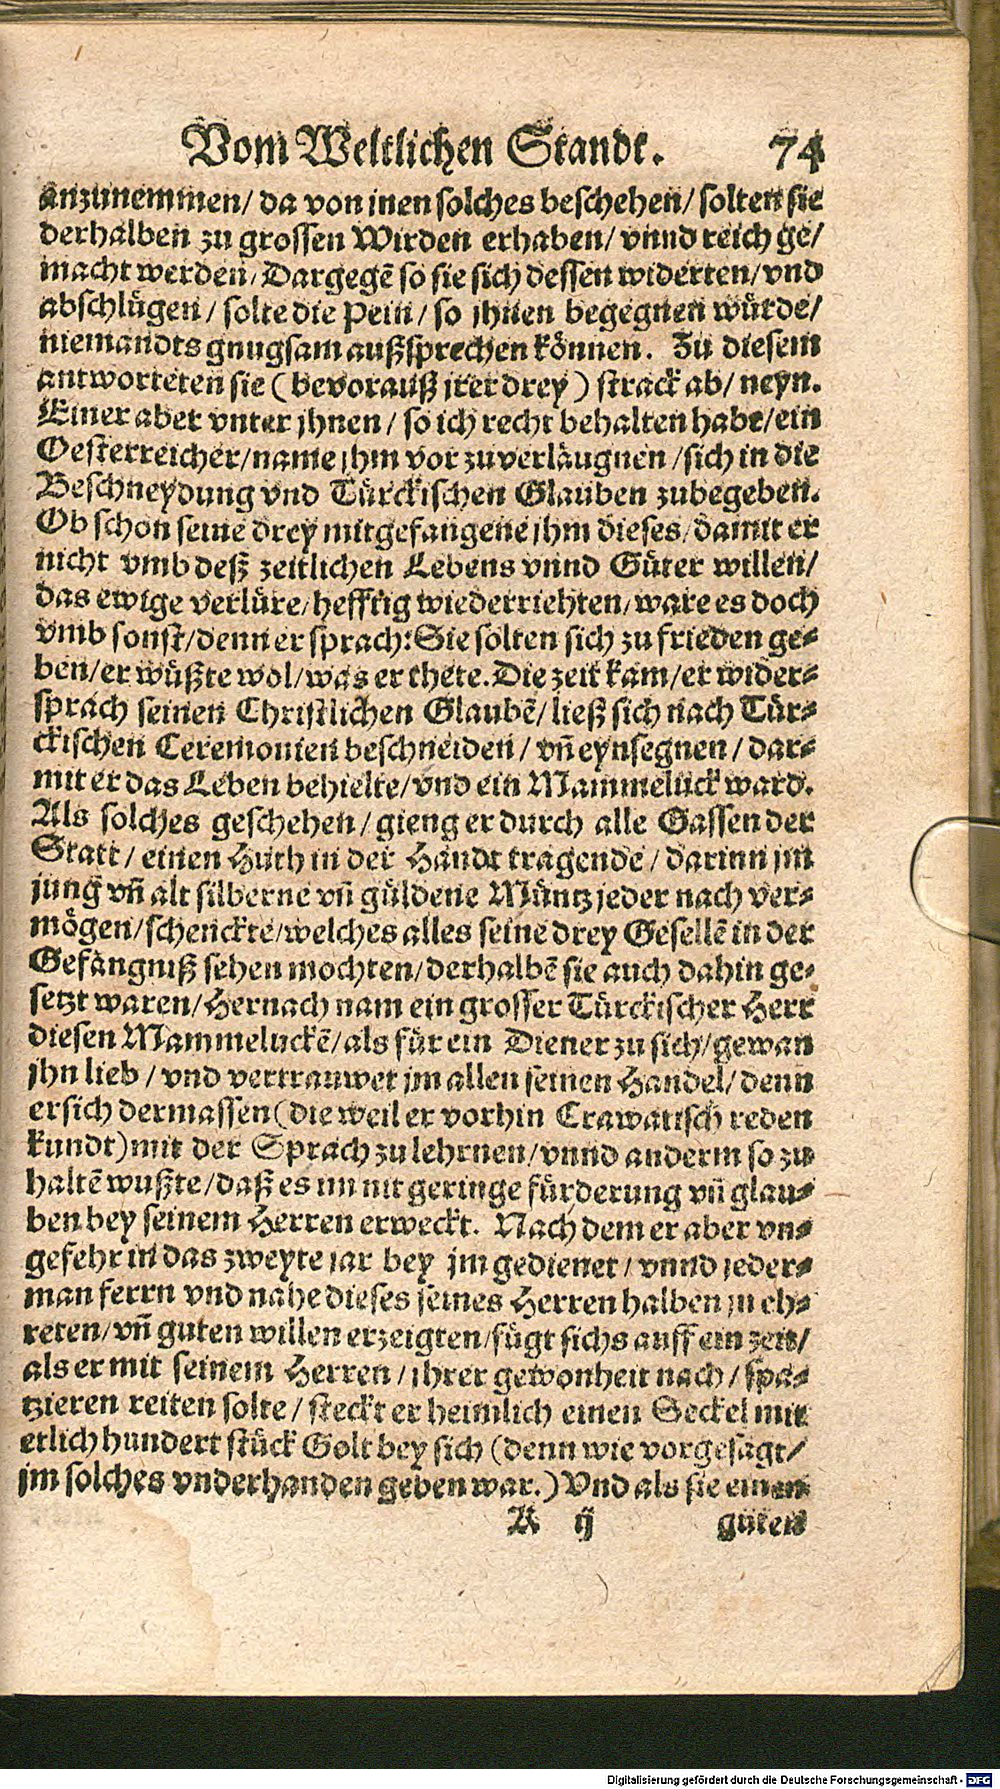 Vom Weltlichen Standt. 74
anzunemmen/ da von jnen solches beschehen/ solten sie
derhalben zu grossen Wirden erhaben/ vnnd reich ge/
macht werden/ Dargegē so sie sich dessen widerten/ vnd
abschlügen / solte die Pein / so jhnen begegnen würde/
niemandts gnugsam außsprechen können. Zu diesem
antworteten sie ( bevorauß jrer drey ) strack ab/ neyn.
Einer aber vnter jhnen / so ich recht behalten habe/ ein
Oesterreicher/ name jhm vor zuverläugnen /sich in die
Beschneydung vnd Türckischen Glauben zubegeben.
Ob schon seine drey mitgefangene jhm dieses/ damit er
nicht vmb deß zeitlichen Lebens vnnd Güter willen/
das ewige verlüre/ hefftig wiederriehten/ ware es doch
vmb sonst/ denn er sprach: Sie solten sich zu frieden ge-
ben/ er wüßte wol/ was er thete. Die zeit kam/ er wider-
sprach seinen Christlichen Glaubē/ ließ sich nach Tür-
ckischen Ceremonien beschneiden / vñ eynsegnen / dar-
mit er das Leben behielte/ vnd ein Mammeluck ward.
Als solches geschehen/ gieng er durch alle Gassen der
Statt / einen Huth in der Handt tragende / darinn jm
jung vñ alt silberne vñ güldene Müntz jeder nach ver-
mögen/ schenckte/ welches alles seine drey Gesellē in der
Gefängniß sehen mochten/ derhalbē sie auch dahin ge-
setzt waren/ Hernach nam ein grosser Türckischer Herr
diesen Mammeluckē/ als für ein Diener zu sich/ gewan
jhn lieb / vnd vertrauwet jm allen seinen Handel/ denn
er sich dermassen (die weil er vorhin Crawatisch reden
kundt) mit der Sprach zu lehrnen/ vnnd anderm so zu
haltē wußte/ daß es im nit geringe fürderung vñ glau-
ben bey seinem Herren erweckt. Nach dem er aber vn-
gefehr in das zweyte jar bey jm gedienet / vnnd jeder-
man ferrn vnd nahe dieses seines Herren halben jn eh-
reten/ vñ guten willen erzeigten/ fügt sichs auff ein zeit/
als er mit seinem Herren / jhrer gewonheit nach / spa-
tzieren reiten solte / steckt er heimlich einen Seckel mit
etlich hundert stück Golt bey sich (denn wie vorgesagt/
jm solches vnderhanden geben war.) Vnd als sie einen
K ij guten
Digitalisierung gefördert durch die Deutsche Forschungsgemeinschaft - DFG